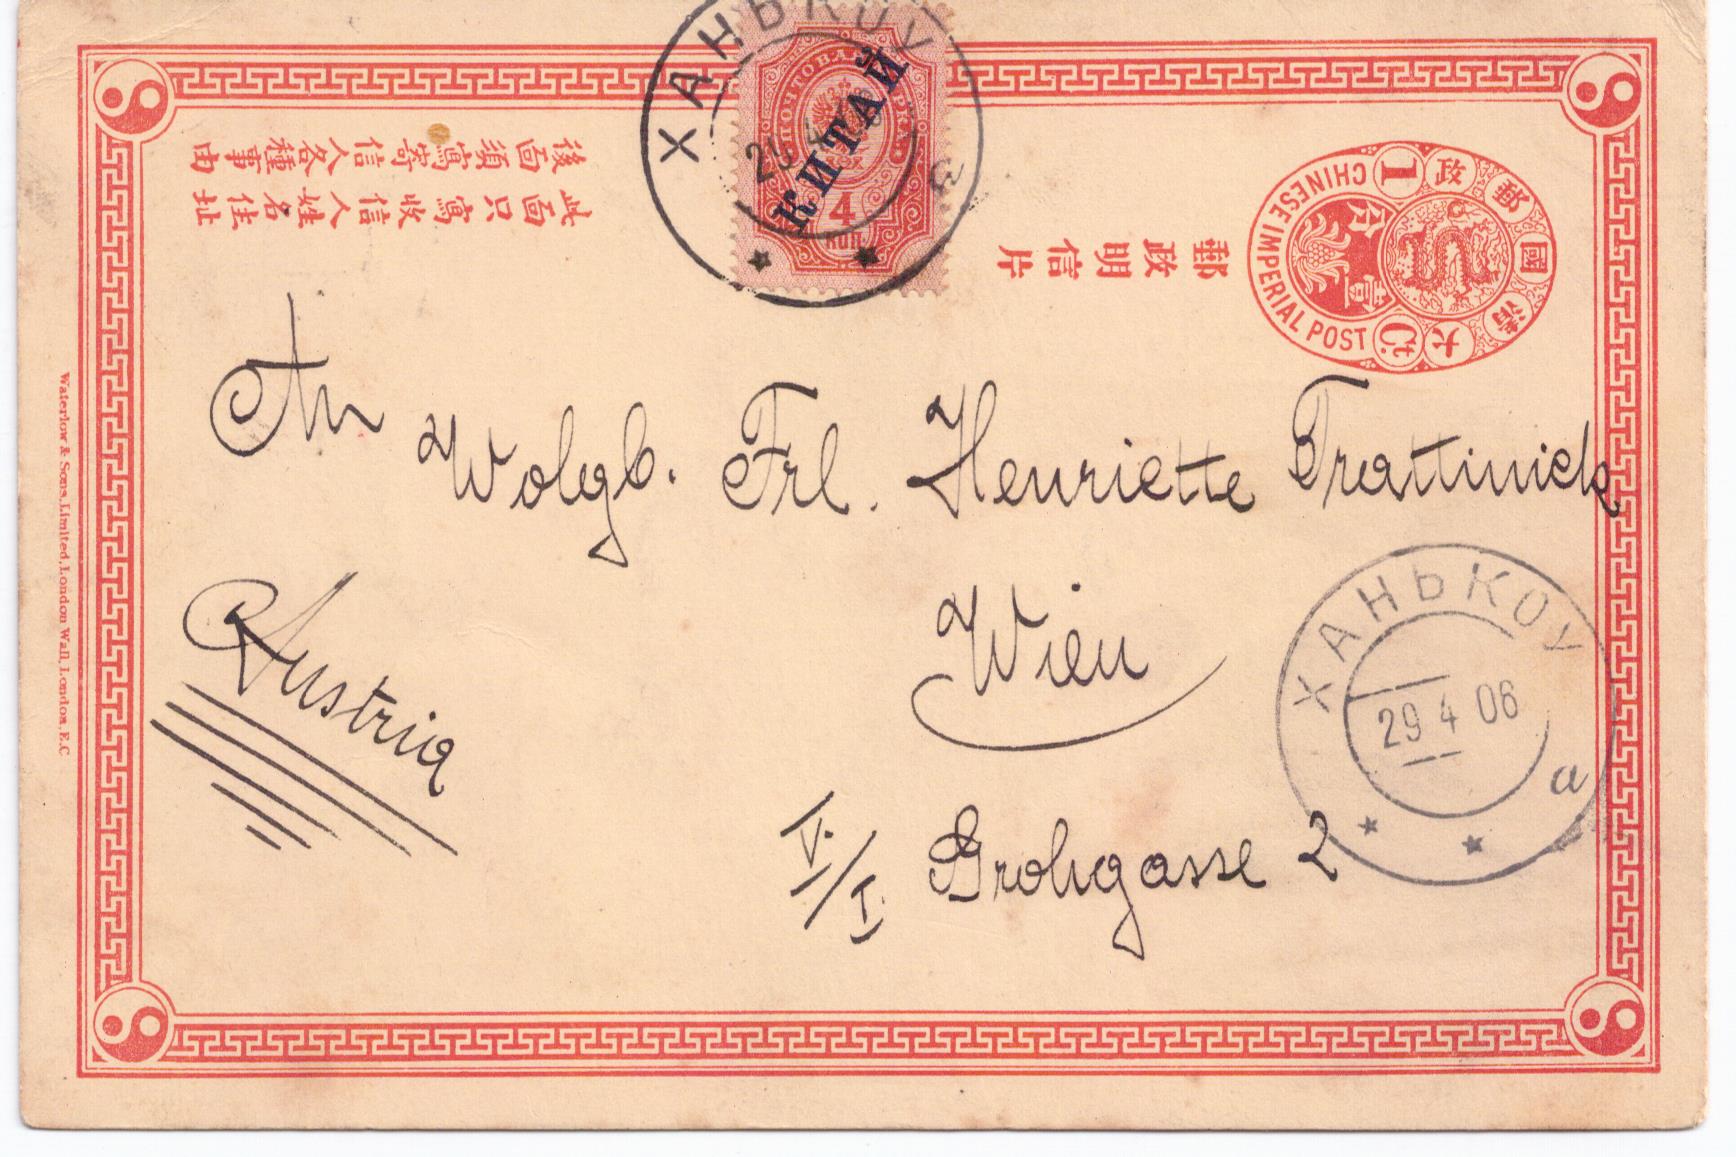 ХАНЬКОУ
ПОЧТОВАЯ МАРКА
29 4
КИТАЙ
4
КОП.
a
後面須寫寄信人各種事由
此面只寫收信人姓名住址
郵政明信片
大清國郵政
CHINESE IMPERIAL POST
1 Ct.
An
Wolgb. Frl. Henriette Trattinick
Wien
Austria
V./I. Grohgasse 2
ХАНЬКОУ
29 4 06
a
Waterlow & Sons, Limited, London Wall, London, E.C